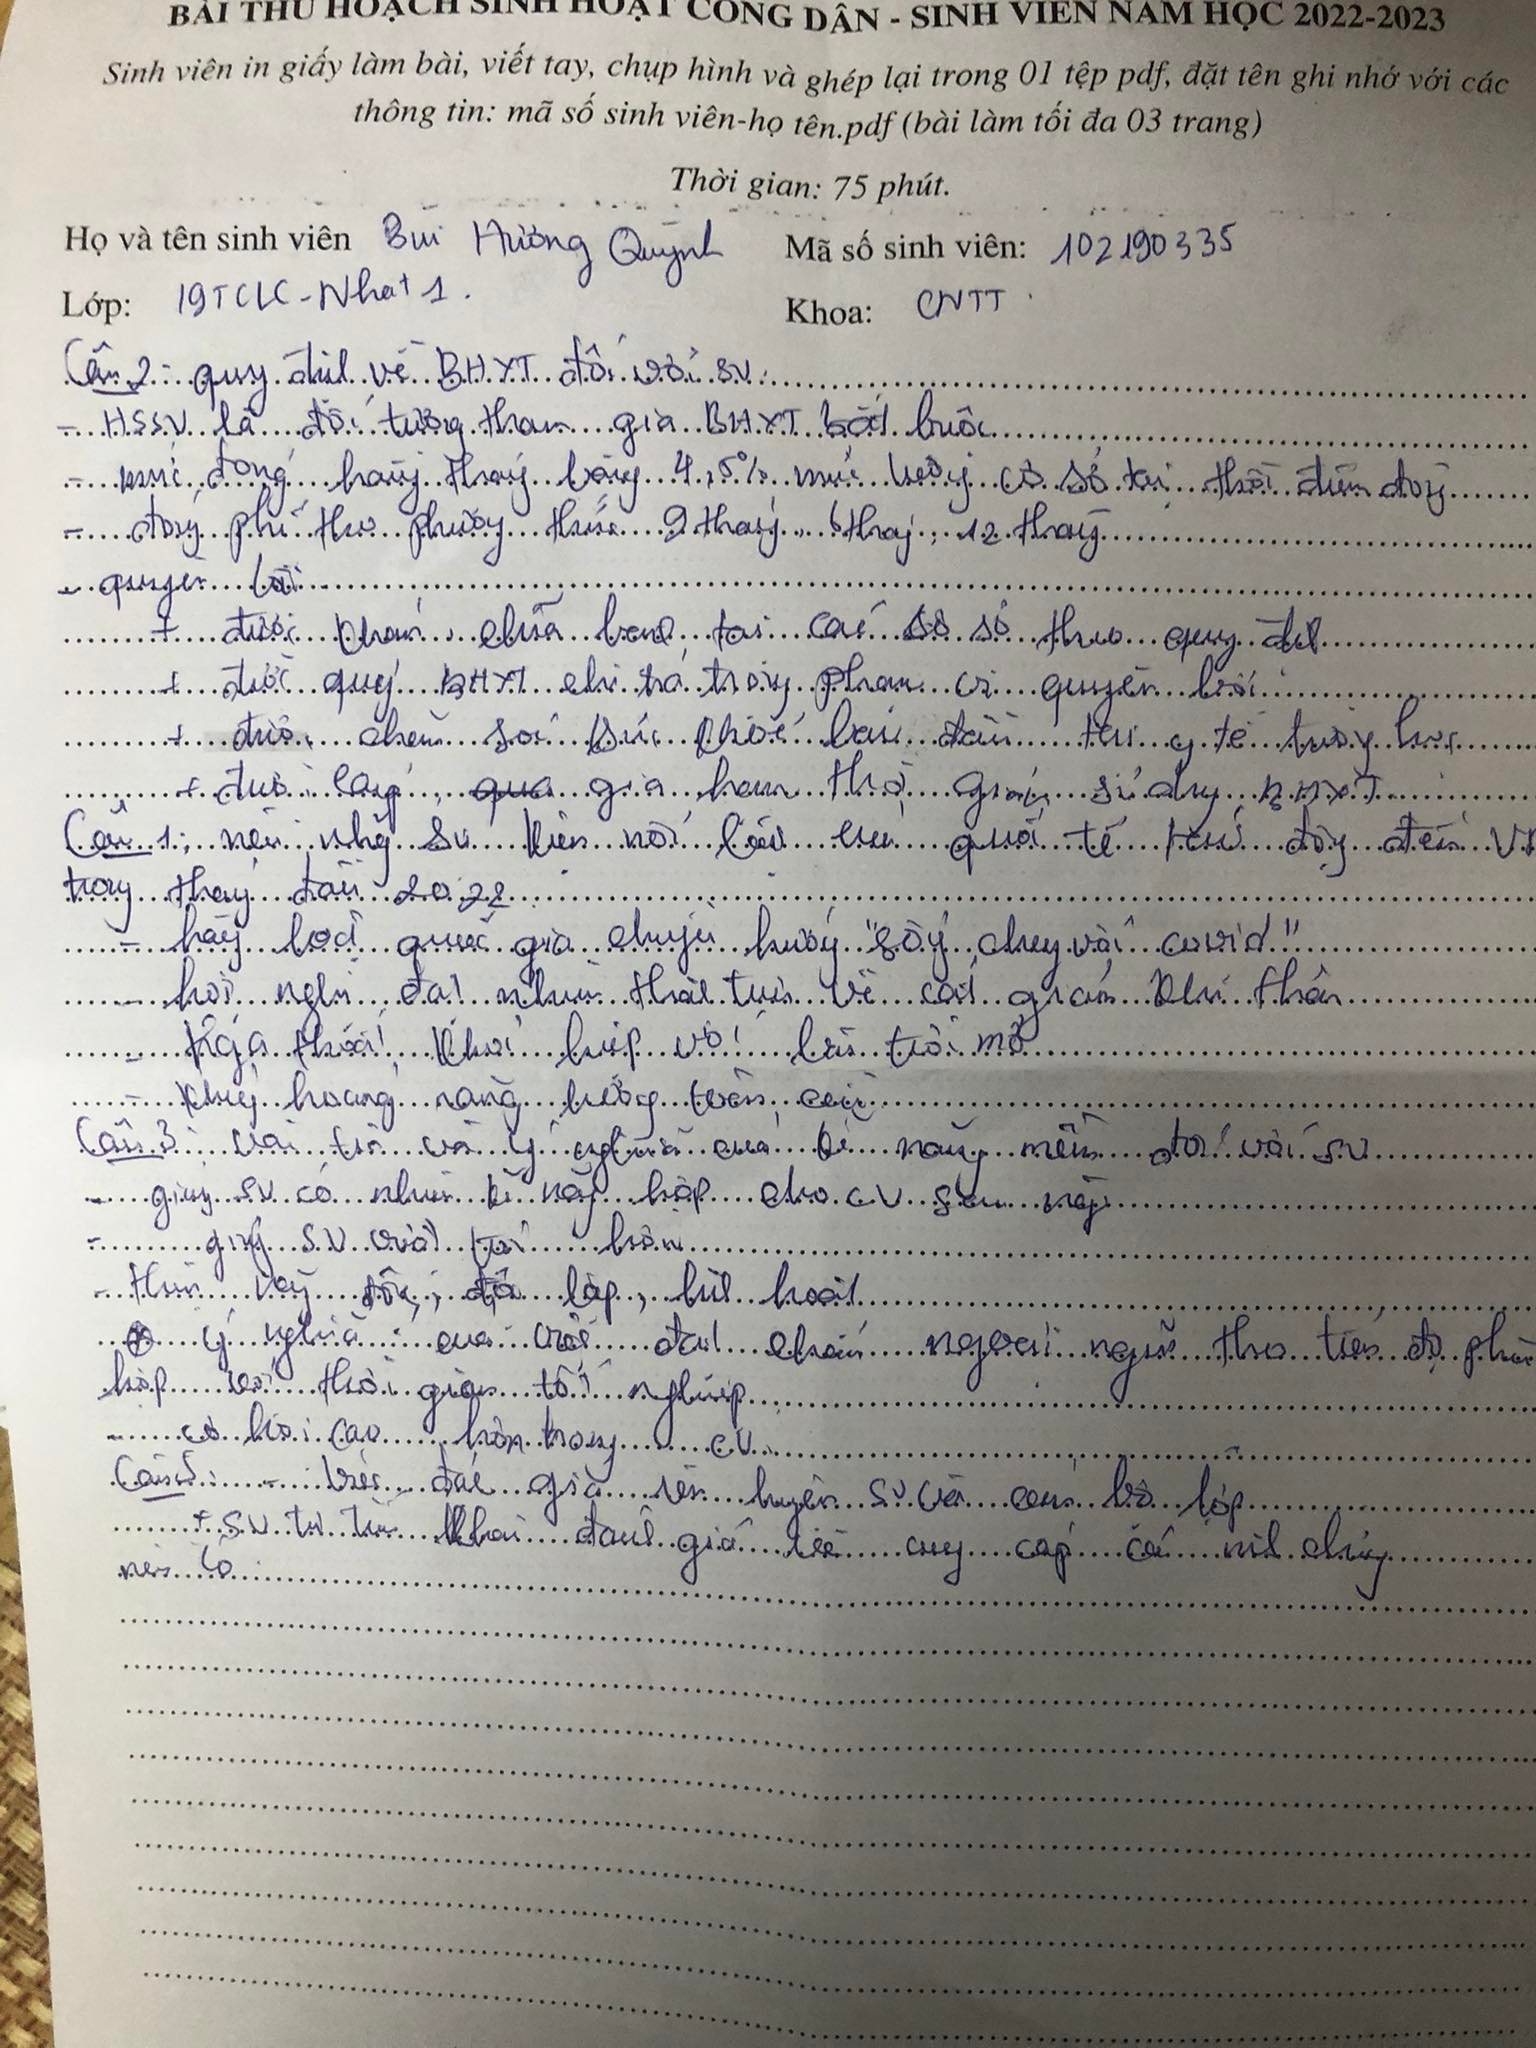 BÀI THU HOẠCH SINH HOẠT CÔNG DÂN - SINH VIÊN NĂM HỌC 2022-2023
Sinh viên in giấy làm bài, viết tay, chụp hình và ghép lại trong 01 tệp pdf, đặt tên ghi nhớ với các
thông tin: mã số sinh viên-họ tên.pdf (bài làm tối đa 03 trang)
Thời gian: 75 phút.
Họ và tên sinh viên Bùi Hương Quỳnh Mã số sinh viên: 102190335
Lớp: 19TCLC-Nhat1. Khoa: CNTT
Câu 2: quy định về BHYT đối với SV:
- HSSV là đối tượng tham gia BHYT bắt buộc
- mức đóng hàng tháng bằng 4,5% mức lương cơ sở tại thời điểm đóng
- đóng phí theo phương thức 9 tháng, 6 tháng, 12 tháng
- quyền lợi
+ được khám, chữa bệnh tại các cơ sở theo quy định
+ được quỹ BHYT chi trả trong phạm vi quyền lợi
+ được chăm sóc sức khỏe ban đầu tại y tế trường học
+ được cấp, gia hạn thời gian sử dụng BHYT
Câu 1: nêu những sự kiện nổi quốc tế đến VN
trong tháng đầu 2022
- hàng loạt quốc gia chuyển hướng "sống chung với covid"
- hội nghị đạt nhiều thỏa thuận về cắt giảm khí thải
- khủng hoảng năng lượng toàn cầu
Câu 3: vai trò và ý nghĩa của kĩ năng mềm đối với SV
- giúp SV có nhiều kĩ năng hợp cho CV sau này
- giúp SV
- độc lập, linh hoạt
ý nghĩa: đạt chuẩn ngoại ngữ theo tiến độ phù
hợp với thời gian tốt nghiệp
- cơ hội cao hơn trong CV
Câu 5: - Việc đánh giá rèn luyện SV và cán bộ lớp
+ SV tự khai đánh giá cung cấp các minh chứng
nếu có